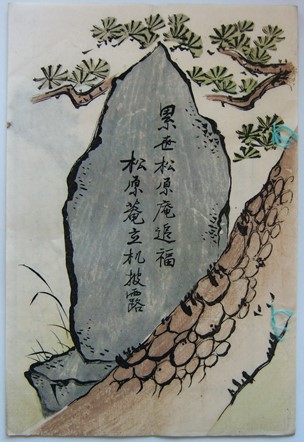 累世松原庵追福
松原菴立机披露